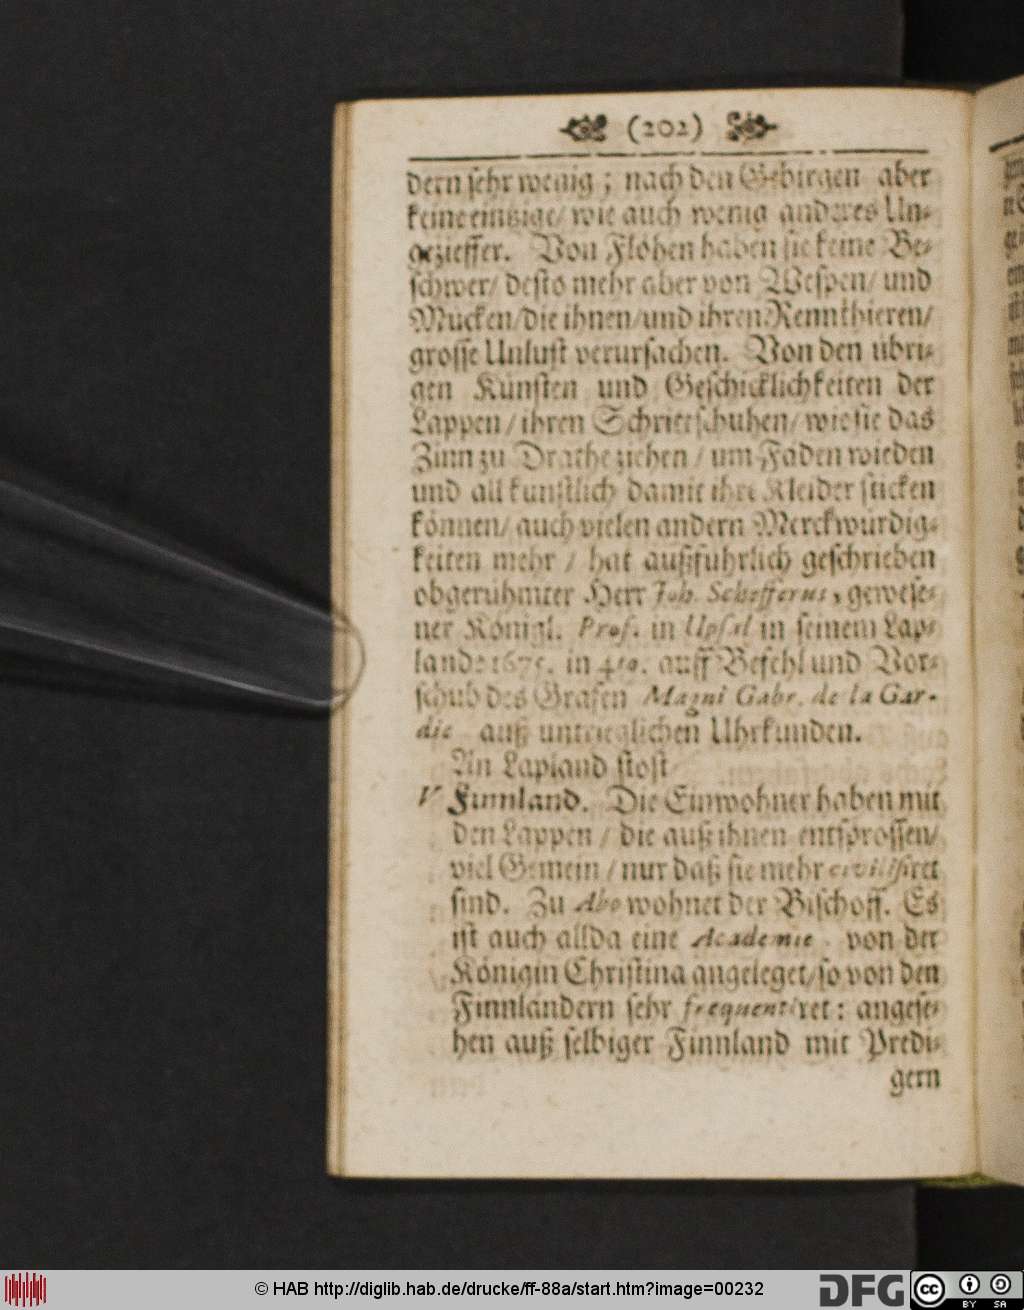 (202)
dern sehr wenig; nach den Gebirgen aber
keine eintzige/ wie auch wenig anderes Un-
gezieffer. Von Flöhen haben sie keine Be-
schwer/ desto mehr aber von Wespen/ und
Mücken/ die ihnen/ und ihren Rennthieren/
grosse Unlust verursachen. Von den übri-
gen Künsten und Geschicklichkeiten der
Lappen/ ihren Schrittschuhen/ wie sie das
Zinn zu Drathe ziehen/ um Faden winden
und all künstlich damit ihre Kleider sticken
können/ auch vielen andern Merckwürdig-
keiten mehr/ hat außführlich geschrieben
obgerühmter Herr Joh. Schefferus, gewese-
ner Königl. Prof. in Upsal in seinem Lap-
land: 1675. in 4to. auff Befehl und Vor-
schub des Grafen Magni Gabr. de la Gar-
die auß untrieglichen Uhrkunden.
An Lapland stost
V Finnland. Die Einwohner haben mit
den Lappen/ die auß ihnen entsprossen/
viel Gemein/ nur daß sie mehr civilisiret
sind. Zu Abo wohnet der Bischoff. Es
ist auch allda eine Academie von der
Königin Christina angeleget/ so von den
Finnländern sehr frequentiret: angese-
hen auß selbiger Finnland mit Predi-
gern
© HAB http://diglib.hab.de/drucke/ff-88a/start.htm?image=00232
DFG
cc BY SA